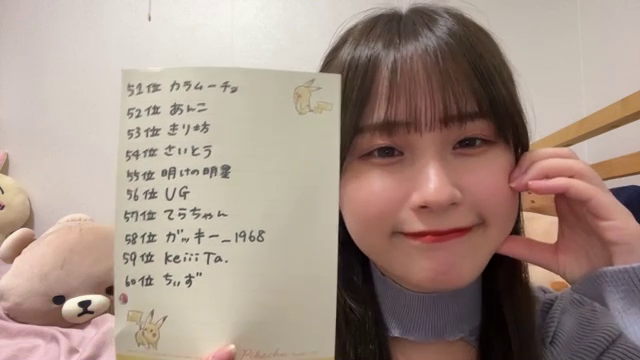 51位 カラムーチョ
52位 あんこ
53位 きり坊
54位 さいとう
55位 明けの明星
56位 UG
57位 てらちゃん
58位 ガッキー_1968
59位 keiii Ta.
60位 ちぃず
Pikachu